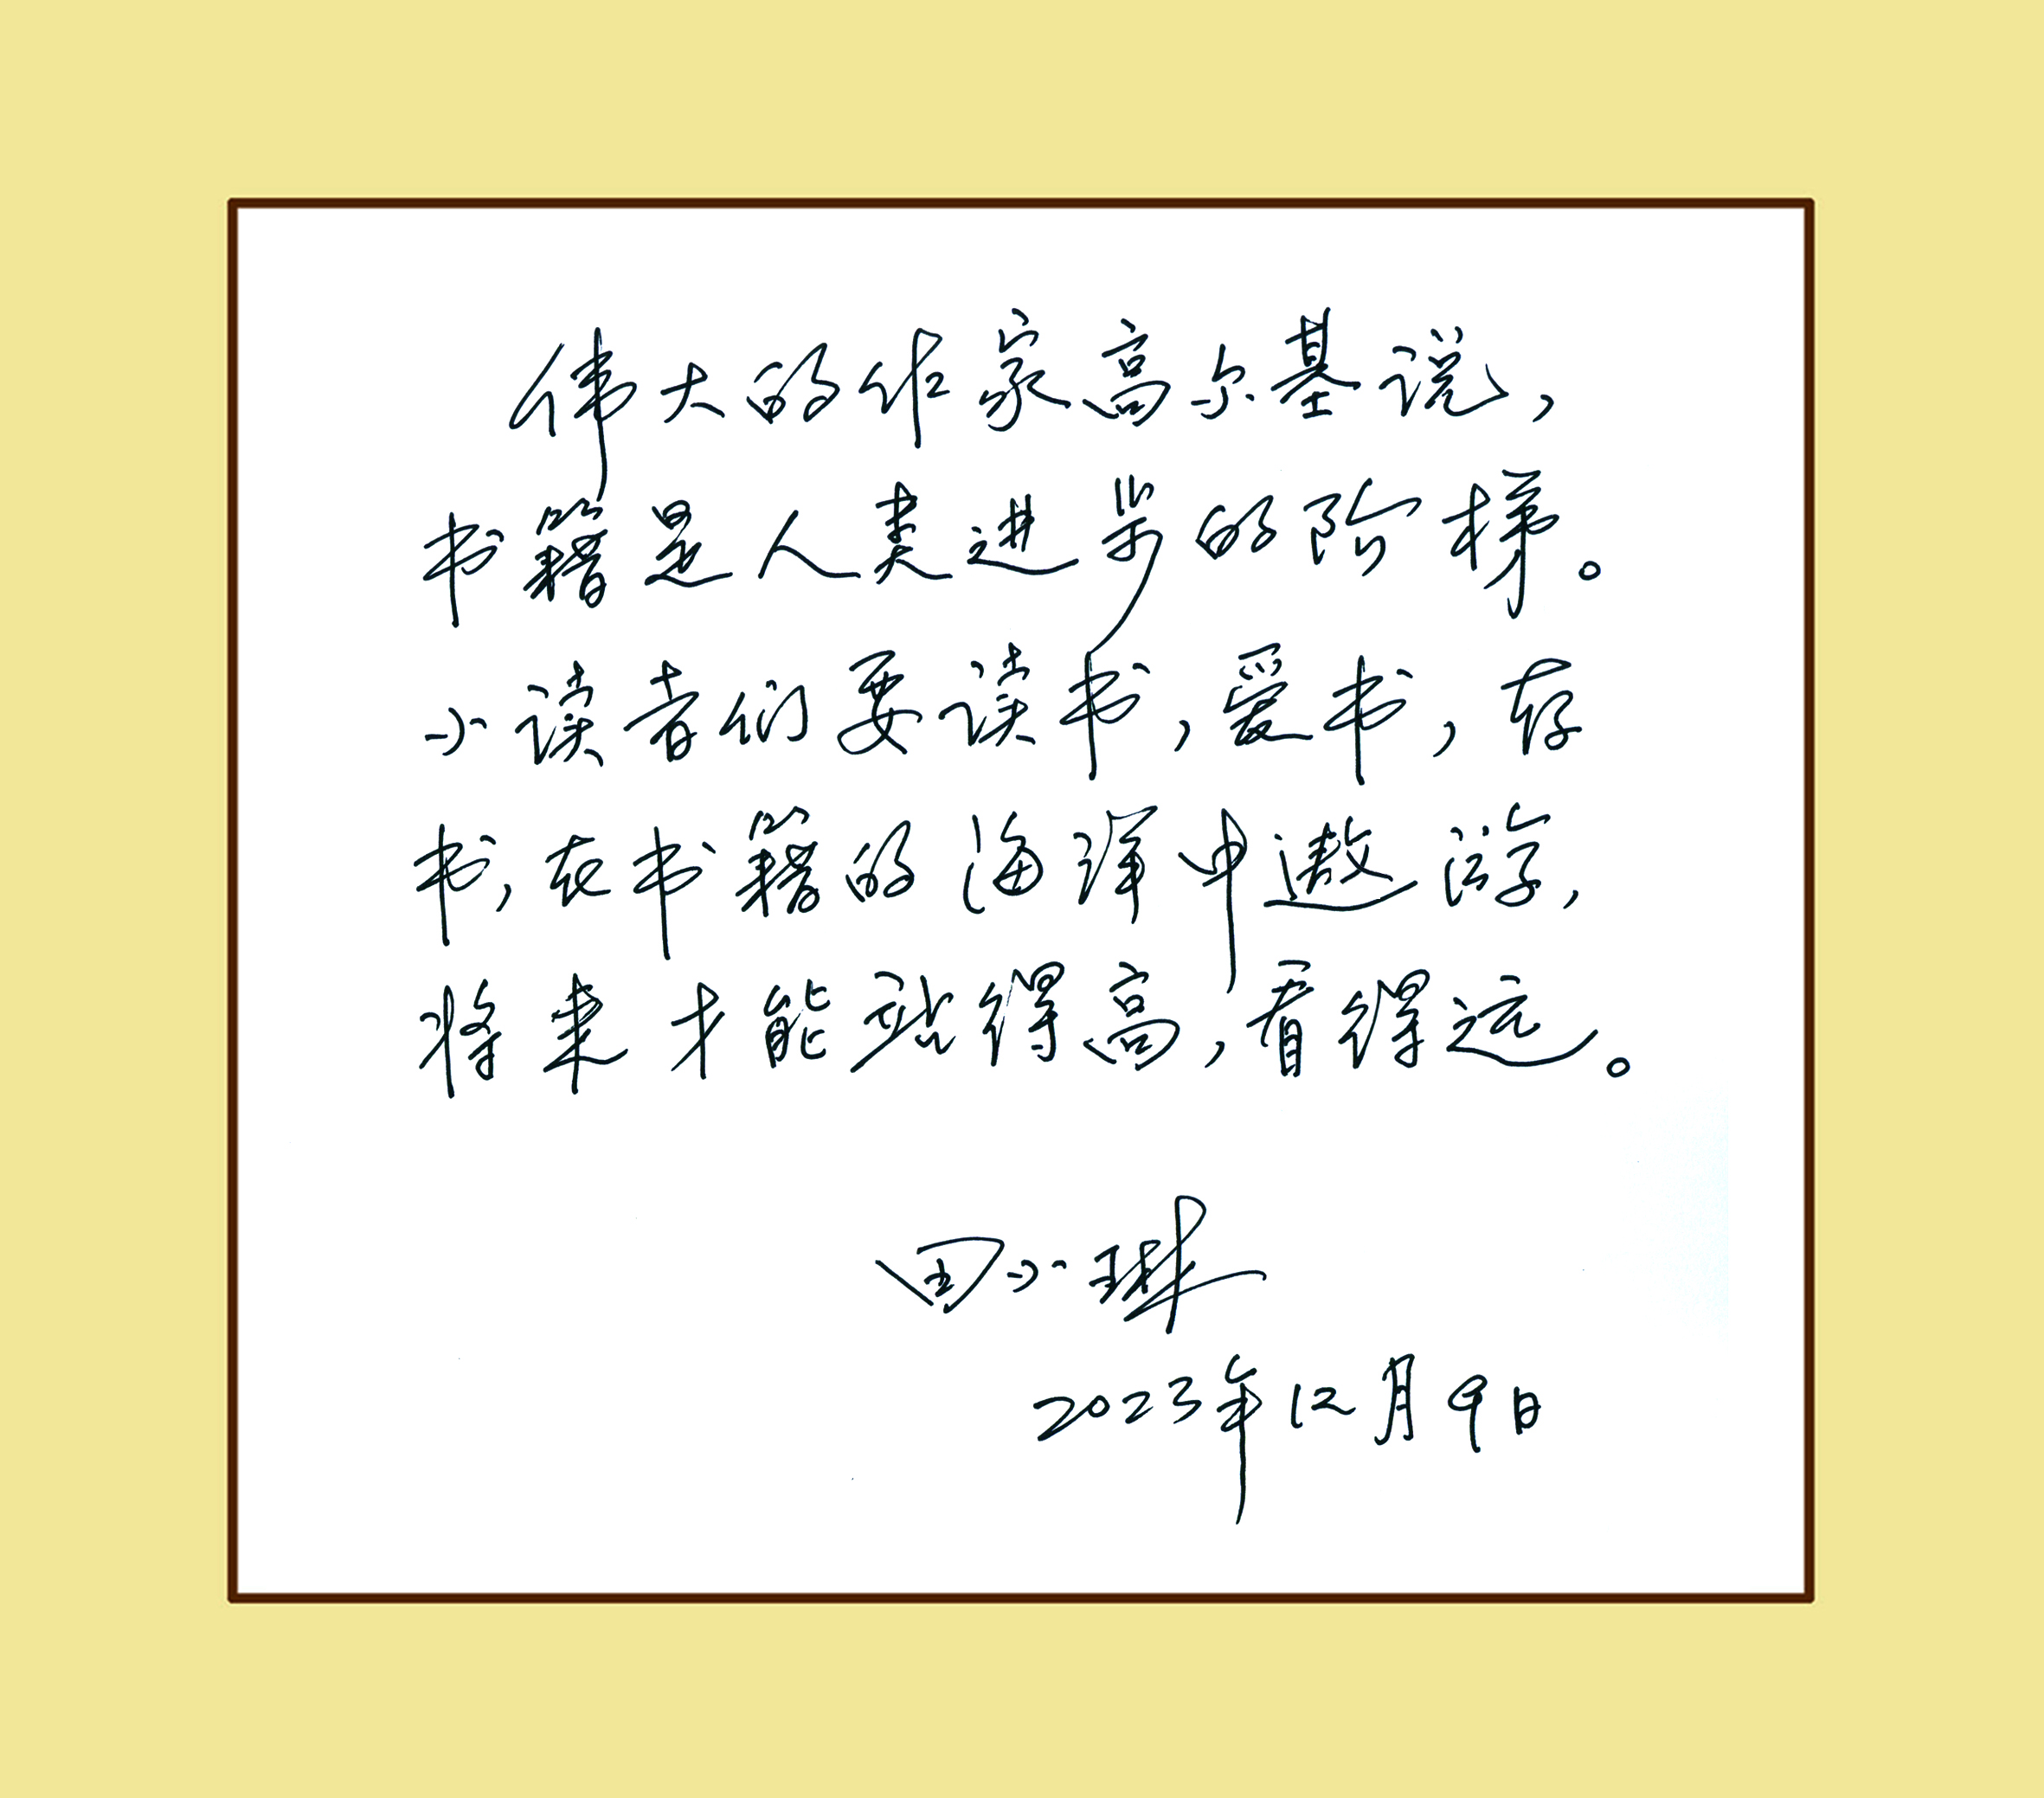 伟大的作家高尔基说，
书籍是人类进步的阶梯。
小读者们要读书，爱书，存
书，在书籍的海洋中遨游，
将来才能站得高，看得远。
田小琳
2023年12月9日